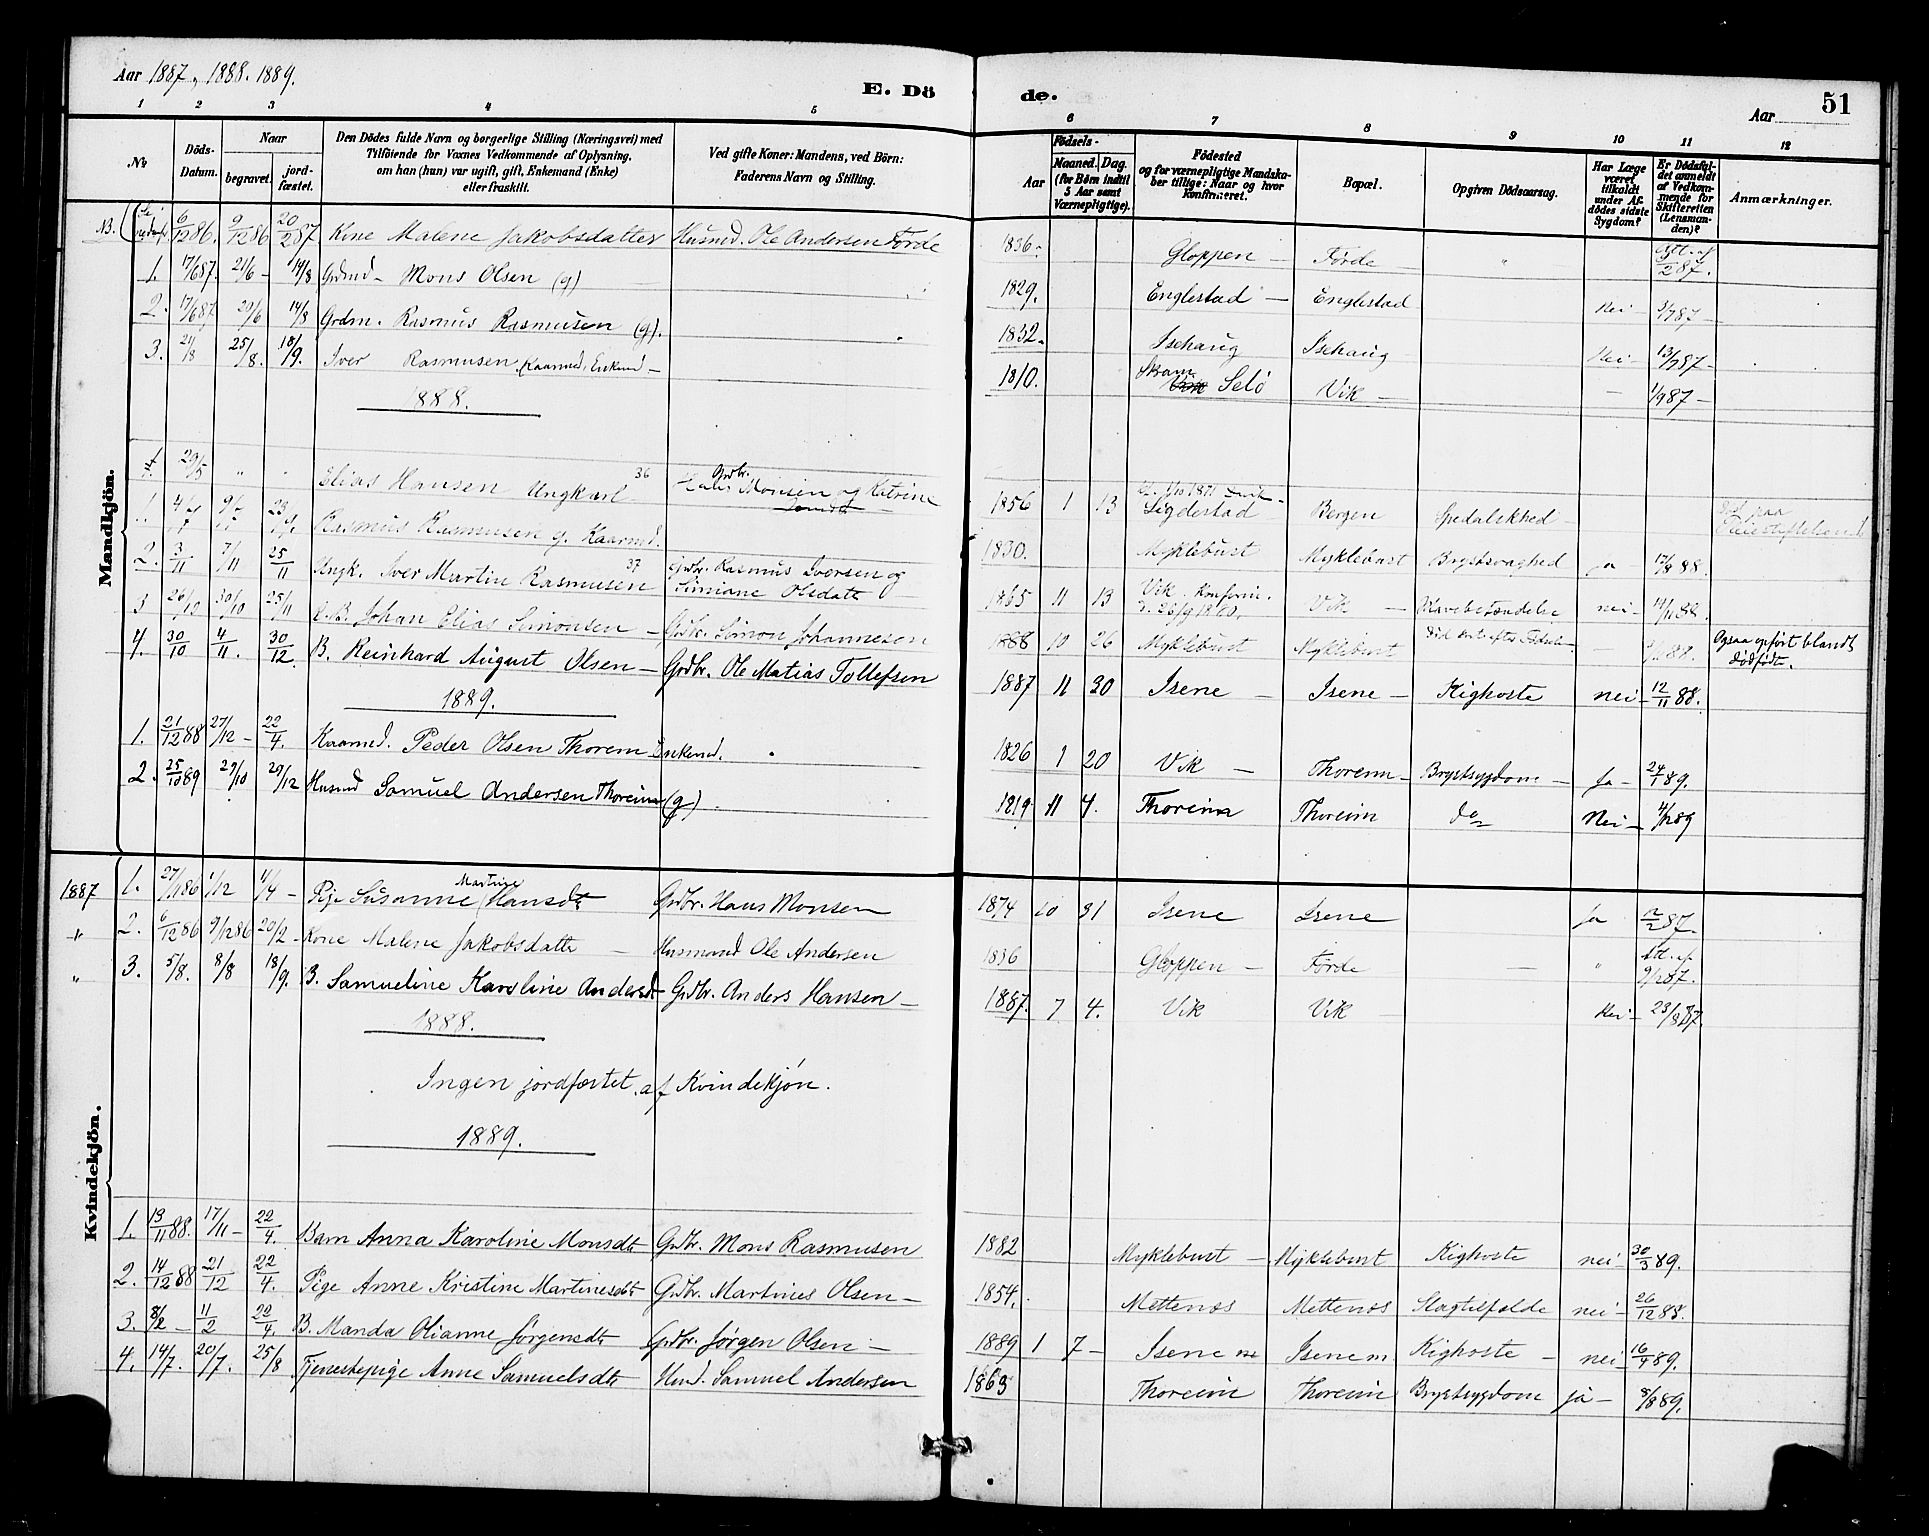 Aar 1887, 1888. 1889.
E. Dö
de.
Aar
51
1 2 3 4 5 6 7 8 9 10 11 12
No
Döds-Datum.
Naar
begravet.
jord-fæstet.
Den Dödes fulde Navn og borgerlige Stilling (Næringsvei) med
Tilföiende for Voxnes Vedkommende af Oplysning,
om han (hun) var ugift, gift, Enkemand (Enke)
eller fraskilt.
Ved gifte Koner: Mandens, ved Börn:
Faderens Navn og Stilling.
Födsels-
Aar
Maaned. Dag.
(for Börn indtil
5 Aar samt
Værnepligtige).
Födested
og for værnepligtige Mandska-
ber tillige: Naar og hvor
Konfirmeret.
Bopæl.
Opgiven Dödsaarsag.
Har Læge
været
tilkaldt
under Af-
dödes sidste
Sygdom?
Er Dödsfal-
det anmeldt
af Vedkom-
mende for
Skifteretten
(Lensman-
den)?
Anmærkninger.
Mandkjön.
NB. 6/12 86. 9/12 86 20/2 87 Kone Malene Jakobsdatter Husmd. Ole Andersen Förde 1836 Gloppen Förde /2 87.
1. 17/6 87. 21/6 14/8 Grdmd Mons Olsen (g) 1829. Englestad Englestad Nei 3/7 87
2. 17/6 87 20/6 14/8 Grdm. Rasmus Rasmusen (g). 1832. Isehaug Isehaug Nei 13/9 87
3. 21/8 25/8. 18/9. Iver Rasmusen. Kaarmd, Enkmd 1810. Selö Vik 1/9 87
1888.
29/5 " " Elias Hansen Ungkarl 36 Grdbr. Hans Monsen og Katrine 1856 1 13 Ligdestad Bergen Spedalskhed Død paa Pleiestiftelsen
1. Rasmus Rasmusen g. Kaarmd. 1830. Myklebust Myklebust Brystsvaghed ja 17/8 88.
2. 3/11 7/11 25/11 Ungk. Iver Martin Rasmusen 37 Grdbr. Rasmus Iversen og Simiane Olsdatt 1865 11 13 Vik. Konfirm. d. 26/9 1880. Vik Mavebetændelse nei 14/11 88
3 26/10 30/10 25/11 Johan Elias Simonsen Grdbr. Simon Johannesen 1888 10 26 Myklebust Myklebust Ogsaa opført blandt dødfødte.
4. 30/10 4/11. 30/12. B. Reinhard August Olsen Grdbr. Ole Matias Tollefsen 1887 11 30 Isene Isene Kighoste nei 12/11 88.
1889.
1. 21/12 88 27/12 22/4. Kaarmd. Peder Olsen Thoreim Enkemd. 1826 1 20 Vik Thoreim Brystsygdom Ja 24/1 89.
2. 25/10 89 29/10 29/12 Husmd Samuel Andersen Thoreim (g) 1819 11 4. Thoreim Thoreim do Nei 4/12 89
Kvindekjön.
1887 1. 27/11 86 1/12 11/4 Pige Susanne Martine Hansdt Grdbr. Hans Monsen 1874 10 31 Isene Isene Ja 12/2 87.
" 2. 6/12 86 9/12 86 20/2 Kone Malene Jakobsdatte Husmand Ole Andersen 1836 Gloppen Förde " Att. af 9/2 87.
" 3. 5/8. 8/8 18/9. B. Samueline Karoline Andersdt Grdbr. Anders Hansen 1887. 7 4. Vik Vik Nei 23/8 87.
1888.
Ingen jordfæstet af Kvindekjön.
1889.
1. 13/11 88. 17/11 22/4. Barn Anna Karoline Monsdt Grdbr. Mons Rasmusen 1882 Myklebust Myklebust Kighoste nei 30/3 89.
2. 14/12 88 21/12 22/4. Pige Anne Kristine Martinesdt Grdbr. Martines Olsen 1854. Mettenes Mettenes Slagtilfælde nei 26/12 88.
3. 8/2 11/2 22/4. B. Manda Olianne Jörgensdt Grdbr. Jörgen Olsen 1889 1 7 Isene m Isene m. Kighoste nei 16/4 89.
4. 14/7. 20/7. 25/8 Tjenestepige Anne Samuelsdt Hmd. Samuel Andersen 1863 Thoreim Thoreim Brystsygdom ja 5/8 89.